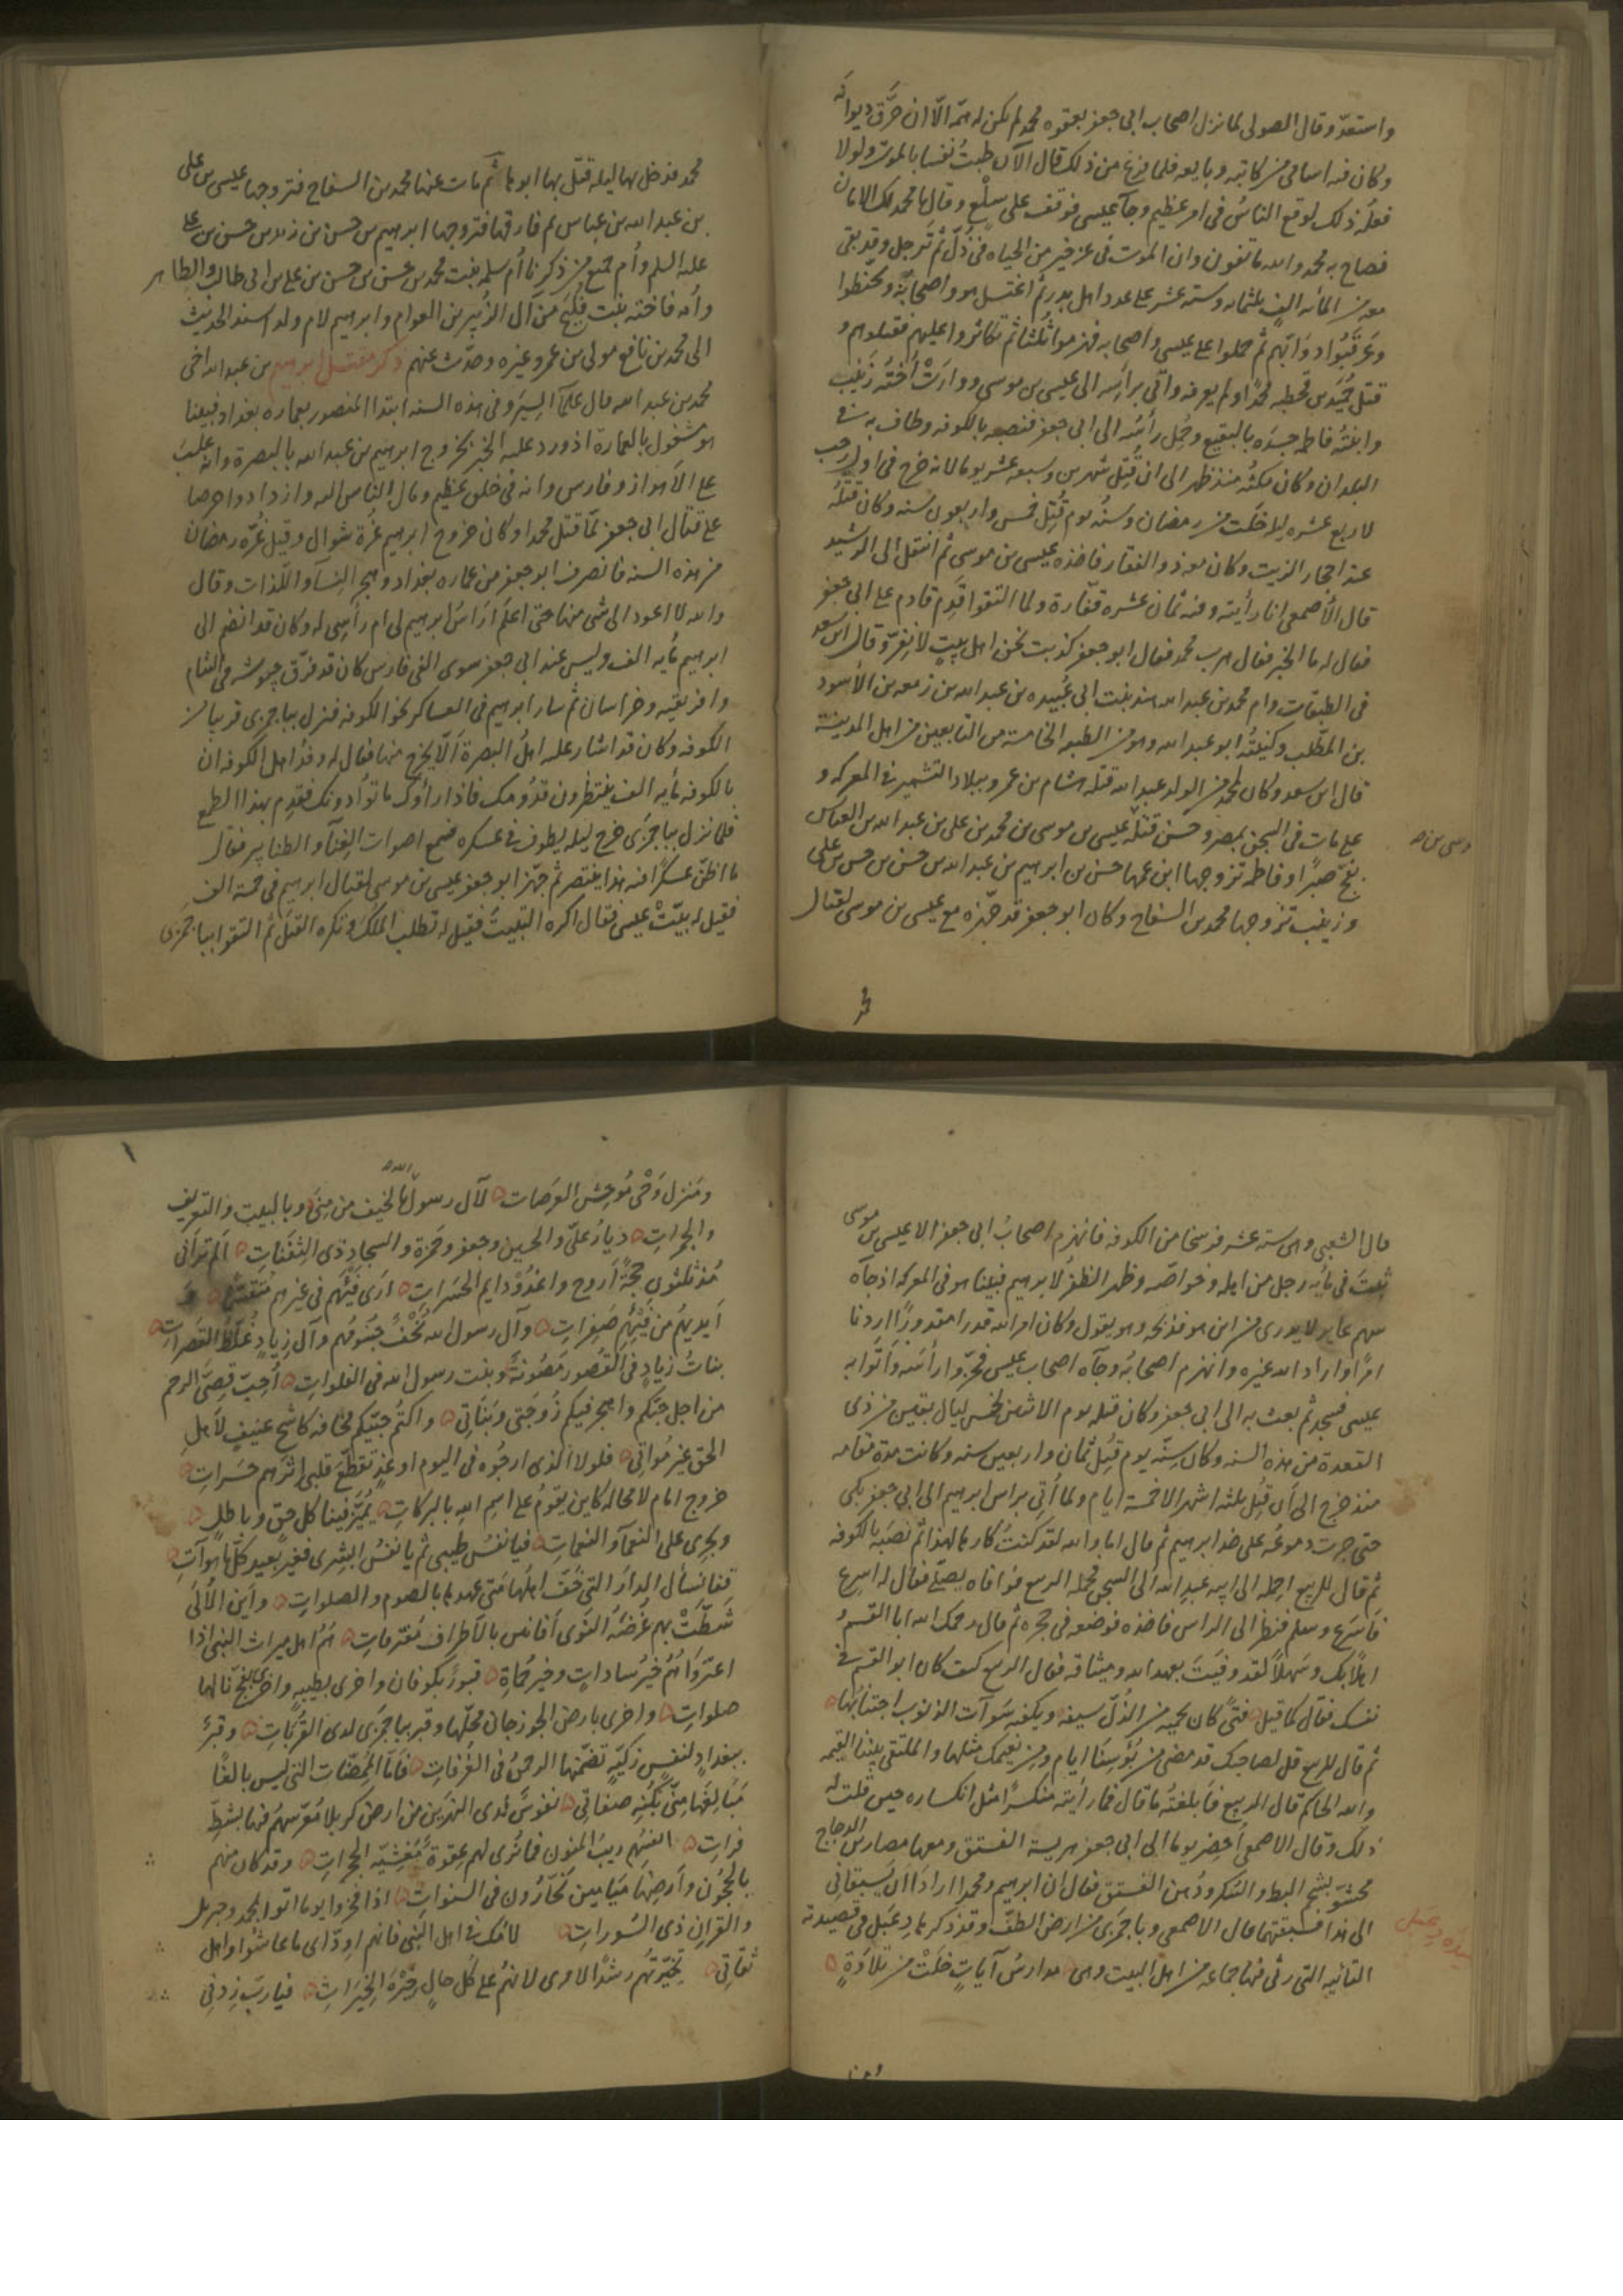 واستعدّ وقال الصولى لما نزل اصحاب ابى جعفر بعقوه محمد لم يكن له همّ الّا ان حرّق ديوانه
وكان فيه اسامى من كاتبه وبايعه فلما فرغ من ذلك قال الآن طبتُ نفسا بالموت ولولا
فعله ذلك لوقع الناسُ فى امر عظيم وجآ عيسى فوقف على سلْع وقال يا محمد لك الامان
فصاح به محمد والله ما تفون وان الموت فى عز خير من الحياه فى ذُلّ ثم ترجل وقد بقى
معه من المائه الف ثلثمايه وستة عشر على عدد اهل بدر ثم اغتسل هو واصحابه وتحنّطوا
وعَرقَبُوا دوَابّهم ثم حملوا على عيسى واصحابه فهزموا ثلثا ثم تكاثروا عليهم فقتلوهم و
قتل حُمَيد بن قحطبه محمدًا ولم يعرفه واتى براسه الى عيسى بن موسى ووارَتْ اختُه زَينب
وابنتُه فاطمه جسدَه بالبقيع وحُمِل رأسُه الى ابى جعفر فنصبه بالكوفه وطاف به فى
البلدان وكان مكثُه منذ ظهر الى ان قُتِل شهرين وسبعه عشر يوما لانه خرج فى اول رجب
لاربع عشره ليله خلَت من رمضان وسنُّه يوم قُتِل خمس واربعون سنه وكان قتلُه
عند احجار الزيت وكان معه ذو الفقار فاخذه عيسى بن موسى ثم انتقل الى الرشيد
قال الأصمعى انا رأيته وفيه ثمان عشره فقارة ولما التقوا قدِم قادم على ابى جعفر
فقال له ما الخبر فقال هرب محمد فقال ابو جعفر كذبت نحن اهل بيتٍ لا نفِرّ وقال ابن سعد
فى الطبقات وام محمد بن عبد الله هند بنت ابى عُبيده بن عبد الله بن زمعه بن الأسود
بن المطّلب وكنيتُه ابو عبد الله وهو من الطبقه الخامسة من التابعين من اهل المدينة
قال ابن سعد وكان لمحمد من الولد عبد الله قتله هشام بن عمرو ببلاد التشمير فى المعركه و
على مات فى السجن بمصر وحسن قتله عيسى بن موسى بن محمد بن على بن عبد الله بن العباس
بفخ صبرًا وفاطمه تزوجها ابن عمها حسن بن ابرهيم بن عبد الله بن حسن بن حسن بن على
وزينب تزوجها محمد بن السفاح وكان ابو جعفر قد جهّزه مع عيسى بن موسى لقتال
محمد فدخل بها ليله قتل بها ابوها ثم مات عنها محمد بن السفاح فتزوجها عيسى بن على
بن عبد الله بن عباس ثم فارقها فتزوجها ابرهيم بن حسن بن زيد بن حسن بن على
عليه السلم وأم جميع من ذكرنا أم سلمه بنت محمد بن حسن بن حسن بن على بن ابى طالب والطاهر
وأمه فاخته بنت فُلَيح من آل الزُبير بن العوام وابرهيم لام ولد اسند الحديث
الى محمد بن نافع مولى بن عمر وغيره وحدّث عنهم ذكر مقتل ابرهيم بن عبد الله اخى
محمد بن عبد الله قال علمآ السِيَر وفى هذه السنه ابتدا المنصور بعماره بغداد فبينا
هو مشغول بالعمارة اذ ورد عليه الخبر بخروج ابرهيم بن عبد الله بالبصرة وانه غلب
على الأهواز وفارس وانه فى خلق عظيم ومال الناس اليه وازدادوا حرصا
على قتال ابى جعفر لمّا قتل محمدا وكان خروج ابرهيم غُرة شوال وقيل غُرّه رمضان
من هذه السنه فانصرف ابو جعفر من عماره بغداد وهجر النسآ واللّذات وقال
والله لا اعود الى شئ منها حتى اعلم اراسُ ابرهيم لى ام رأسِى له وكان قد انضم الى
ابرهيم مأيه الف وليس عند ابى جعفر سوى الفى فارس كان قد فرّق جيوشه فى الشام
وافريقيه وخراسان ثم سار ابرهيم فى العساكر نحو الكوفه فنزل بباجمرى قريبا من
الكوفه وكان قد اشار عليه اهلُ البصرة ألّا يخرج منها فقال له وفد اهل الكوفه ان
بالكوفه مأيه الف ينتظرون قدُومك فاذا رأوك ماتوا دونك فقدِم بهذا الطمع
فلما نزل بباجمرَى خرج ليله يطوف فى عسكره فسمع اصوات الغِنآ والطنابير فقال
ما اظنّ عسكرًا فيه هذا ينتصر ثم جهّز ابو جعفر عيسى بن موسى لقتال ابرهيم فى خمسة الف
فقيل له بيّتْ عيسى فقال اكره التبييتَ فقيل له تطلب الملكَ وتكره القتلَ ثم التقوا بباجمرى
قال الشعبى وهى ستة عشر فرسخا من الكوفه فانهزم اصحابُ ابى جعفر الا عيسى بن موسى
ثبت فى مأيه رجل من اهله وخواصّه وظهر الظفرُ لابرهيم فبينا هو فى المعركه اذ جاه
سهم عاير لا يدرى من اين هو فذبحه وهو يقول وكان امر الله قدرا مقدورًا اردنا
امرًا واراد الله غيره وانهزم اصحابُه وجآه اصحاب عيسى فحزّوا رأسَه وأتوا به
عيسى فسجد ثم بعث به الى ابى جعفر وكان قتله يوم الاثنين لخمس ليال بقين من ذى
القعدة من هذه السنه وكان سِنّه يوم قُتِل ثمان واربعين سنه وكانت مدة مقامه
منذ خرج الى أن قُتِل ثلثه اشهر الا خمسة ايام ولما أُتى براس ابرهيم الى ابى جعفر بكى
حتى جرت دموعُه على خد ابرهيم ثم قال اما والله لقد كنتُ كارها لهذا ثم نصَبه بالكوفه
ثم قال للربيع احمله الى ابيه عبد الله الى السجن فحمله الربيع فوافاه يصلّى فقال له اسرِع
فاَسرَع وسلم فنظر الى الراس فاخذه فوضعه فى حجره ثم قال رحمك الله ابا القسم و
اهلًا بك وسَهلًا لقد وفيتَ بعهد الله وميثاقه فقال الربيع كيف كان ابو القسم فى
نفسك فقال كما قيل فتًى كان يحميه من الذُلّ سيفه ويكفيه سَوآت الذنوب اجتنابُها
ثم قال للربيع قل لصاحبك قد مضى من بُؤسِنَا ايام ومن نعيمك مثلها والملتقى بيننا القيمه
والله الحاكم قال الربيع فاَبلغتُه ما قال فما رأيته منكسرًا مثل انكساره حين قلت له
ذلك وقال الاصمعى أُحضِر يوما الى ابى جعفر هريسة الفستق ومعها مصارين الدجاج
محشوّ بشحم البط والسُكر ودُهن الفستق فقال ان ابرهيم ومحمدا ارادَا ان يَسبقانى
الى هذا فسبقتهما قال الاصمعى وباجمرَى من ارض الطفّ وقد ذكرها دِعبَل فى قصيدته
التائيه التى رثى فيها جماعه من اهل البيت وهى مدارسُ آياتٍ خلَتْ من تلاوَةٍ
ومَنزل وَحْىٍ مُوحِش العَرصات لآل رسول الله بالخيف من مِنًى وبالبيت والتعريف
والجمراتِ ديارُ علىّ والحسين وجعفر وحمزة والسجادِ ذى الثفَناتِ الَم ترَ انّى
مُذ ثلثون حجةً أروح واغدُو دايم الحَسَراتِ أرَى فَيئَهم فى غيرهم مُتقسّمًا وَ
اَيديهُم من فَيئهم صَفِراتِ وآل رسول الله نُحْفٌ جُسُومُهم وآل زِيادٍ غُلّظُ القَصَرات
بناتُ زيادٍ فى القُصور مَصُونةً وبنت رسول الله فى الفلواتِ أُحِبّ قصىّ الرحم
من اجل حبّكم واهجر فيكم زَوجَتى وبَناتِى واكتُم حبّيكم مخافه كاشحٍ عنيفٍ لأهلِ
الحق غير مُواتى فلولا الذى ارجُوه فى اليوم او غدٍ تقطّعَ قلبى إثرَهم حسَراتِ
خروج امام لا محاله كاين يقومُ على اسمِ الله بالبركاتِ يُميّز فينا كل حقٍ وباطلٍ
ويجزى على النعمآ والنقماتِ فيا نفسُ طيبى ثم يا نفسُ ابشِرى فغيرُ بعيد كلّما هو آتِ
قِفا نسأل الدارَ التى خَفّ اهلُها متى عهدها بالصوم والصلواتِ واَين الأُلَى
شَطّتْ بهم غُربَة النوى أفانين بالاَطراف مُفترقاتِ هُم اهل ميراث النبى اذا
اعتزَوا وهُم خيرُ ساداتٍ وخير حُماةِ قبورٌ بكوفان واخرى بطيبةٍ واخرى بفخّ نالها
صلواتِ واخرى بارض الجوزجان محلّها وقبر بباجمرَى لدى القُرُباتِ وقبرٌ
ببغدادٍ لنفسٍ زكيّةٍ تضمّنها الرحمنُ فى الغُرفاتِ فاَمّا المُمِضّات التى ليس بالغًا
مَبالِغَها مِنّى بكُنهِ صِفاتى نفوسٌ لدى النهرَين من ارض كربلا مُعَرّسهُم فيها بشطِّ
فراتِ تقسّمَهم ريبُ المنون فما تُرى لهم عقوةٌ مَغشيّه الحجراتِ وقد كان منهم
بالحَجُون وأرضِهَا مَيامين نحّارُون فى السنواتِ اذا فخروا يوما اتَوا بمحمد وجبريل
والقرانِ ذى السُوراتِ ملامَك فى اهل النبى فانهم اودّاى ما عاشوا واهل
ثِقاتى تخيّرتُهم رشدًا لامرى لانهمُ على كل حالٍ خِيرَةُ الخيَراتِ فيا ربّ زِدنى